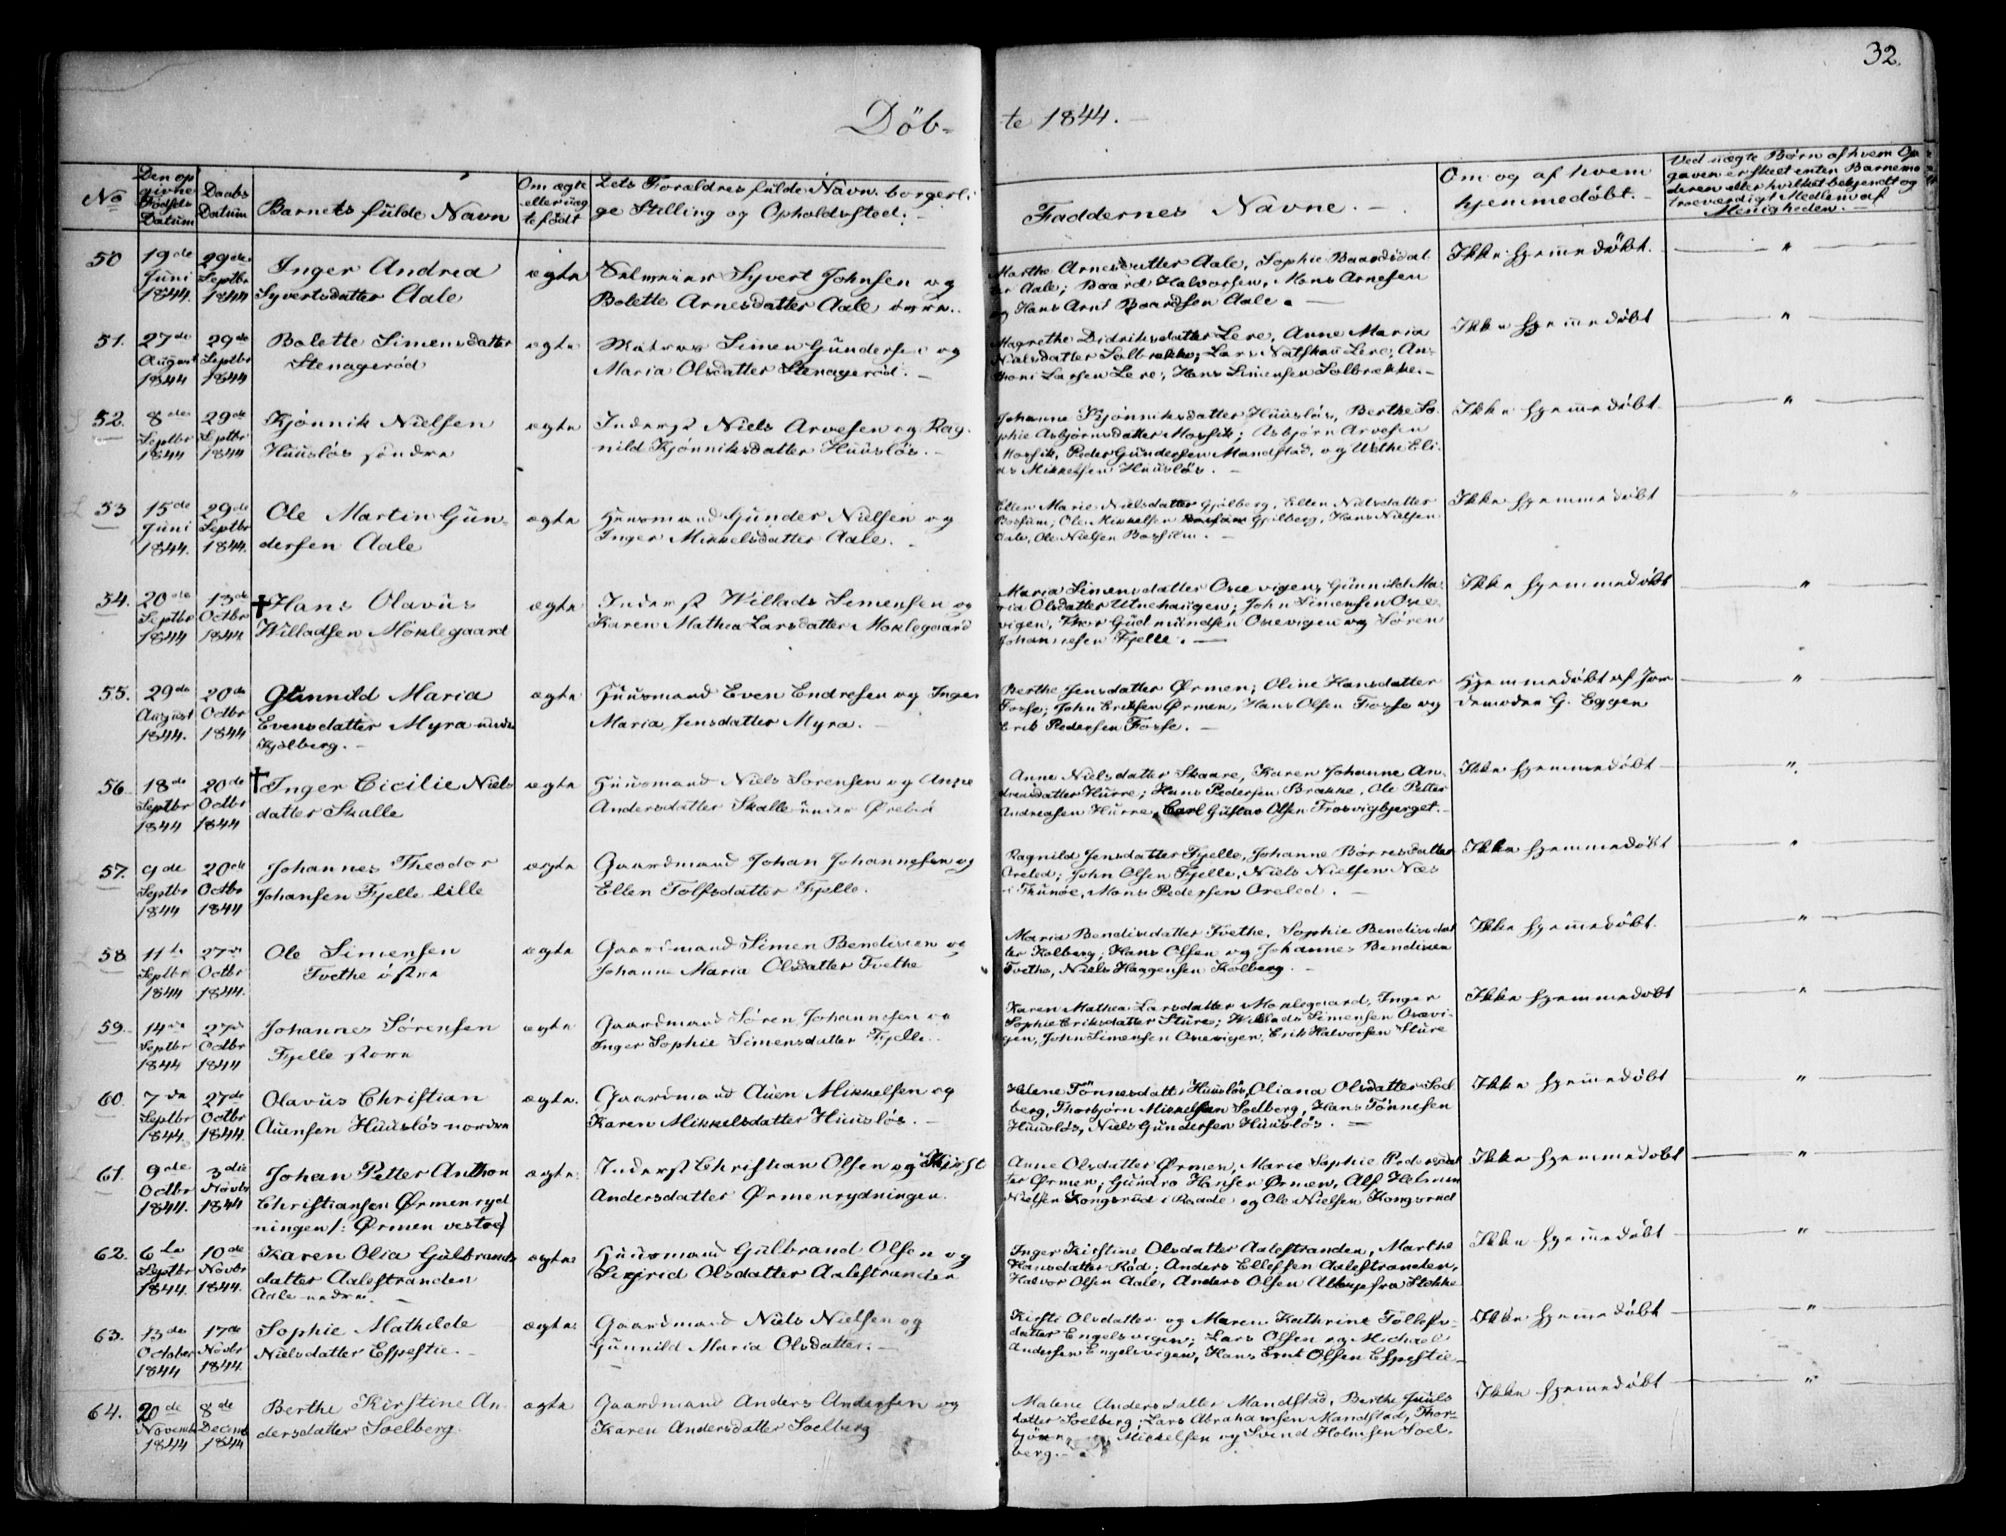 32.
Döb-
te 1844.
No
Den op
givne
Födsels
Datum
Daabs
Datum
Barnets fulde Navn
Om ægte
eller uæg
te födt
Dets Forældres fulde Navn. borgerli
ge Stilling og Opholdssted.
Faddernes Navne.
Om og af hvem
hjemmedöbt.
Ved uægte Börn af hvem Op
gaven er skeet enten Barnemo
deren eller hvilket bekjendt og
troeværdigt Medlem af
Menigheden.
50
19de
Juni
1844.
29de
Septbr
1844
Inger Andrea
Syvertsdatter Aale
ægte
Syvert Johnsen og
Bolette Arnesdatter Aale
Marthe Arnesdatter Aale, Sophie Baardsdat
ter Aale; Baard Halvorsen, Mons Arnesen
og Hans Arnt Baardsen Aale.
Ikke hjemmedöbt.
"
51.
27de
August
1844
29de
Septbr
1844
Bolette Simensdatter
Stenageröd
ægte
Matros Simen Gundersen og
Maria Olsdatter Stenageröd.
Magrethe Didriksdatter Lere, Anne Maria
Nielsdatter Solbrække; Lars Natskau Lere; An-
thoni Larsen Lere, Hans Simensen Solbrække.
Ikke hjemmedöbt
"
52.
8de
Septbr
1844
29de
Septbr
1844
Kjönnik Nielsen
Huuslös söndre
ægte
Inderst Niels Arvesen og Rag-
nild Kjönniksdatter Huuslös.
Johanne Kjönniksdatter Huuslös, Berthe So-
phie Asbjörnsdatter Mossik; Asbjörn Arvesen
Mossik, Peder Gundersen Mandstad, og Uethe Eli-
as Mikkelsen Huuslös.
Ikke hjemmedöbt.
"
53
15de
Juni
1844.
29de
Septbr
1844.
Ole Martin Gun-
dersen Aale
ægte
Huusmand Gunder Nielsen og
Inger Mikkelsdatter Aale.
Ellen Marie Nielsdatter Gjilberg, Ellen Nielsdatter
Bossum; Ole Mikkelsen Gjilberg, Hans Nielsen
Aale, Ole Nielsen Bossum.
Ikke hjemmedöbt
"
54.
20de
Septbr
1844
13de
Octbr
1844
Hans Olavus
Willadsen Moklegaard
ægte
Inderst Willads Simensen og
Karen Mathea Larsdatter Moklegaard
Maria Simensdatter Osevigen, Gunnild Ma-
ria Olsdatter Utnehaugen; John Simensen Ose-
vigen, Thor Gudmundsen Osevigen og Sören
Johannesen Fjelle.
Ikke hjemmedöbt
"
55.
29de
August
1844.
20de
Octbr
1844
Gunnild Maria
Evensdatter Myra under
Kjölberg.
ægte
Huusmand Even Endresen og Inger
Maria Jensdatter Myra.
Berthe Jensdatter Örmen; Oline Hansdatter
Fosse; John Eriksen Örmen, Hans Olsen Fosse og
Erik Pedersen Fosse.
Hjemmedöbt af Jor
demoder G. Eggen
"
56
18de
Septbr
1844
20de
Octbr
1844
Inger Cicilie Niels
datter Skalle
ægte
Huusmand Niels Sörensen og Anne
Andersdatter Skalle under Örebæ
Anne Nielsdatter Skaare, Karen Johanne An-
dreasdatter Hurre; Hans Pedersen Brække, Ole Petter
Andreasen Hurre, Carl Gustav Olsen Trosvigbjerget.
Ikke hjemmedöbt
"
57.
9de
Septbr
1844
20de
Octbr
1844
Johannes Theodor
Johansen Fjelle lille
ægte
Gaardmand Johan Johannesen og
Ellen Tolfsdatter Fjelle.
Ragnild Jensdatter Fjelle, Johanne Börresdatter
Oreled; John Olsen Fjelle, Niels Nielsen Næs
i Thunöe, Mons Pedersen Oreled.
Ikke hjemmedöbt
"
58
11te
Septbr
1844
27de
Octbr
1844.
Ole Simensen
Tvethe östre
ægte
Gaardmand Simen Bendixen og
Johanne Maria Olsdatter Tvethe
Maria Bendixdatter Tvethe, Sophie Bendixdat
ter Kolberg; Hans Olsen og Johannes Bendixen
Tvethe, Niels Haagensen Kolberg.
Ikke hjemmedöbt.
"
59.
14de
Septbr
1844
27de
Octbr
1844
Johannes Sörensen
Fjelle store
ægte
Gaardmand Sören Johannesen og
Inger Sophie Simensdatter Fjelle.
Karen Mathea Larsdatter Moklegaard, Inger
Sophie Eriksdatter Sture; Willads Simensen Osevi-
gen, John Simensen Osevigen, Erik Halvorsen Sture
Ikke hjemmedöbt
"
60
7de
Septbr
1844.
27de
Octbr
1844.
Olavus Christian
Auensen Huuslös nordre
ægte.
Gaardmand Auen Mikkelsen og
Karen Mikkelsdatter Huuslös.
Helene Tönnesdatt. Huuslös, Oliana Olsdatter Soel
berg, Thorbjörn Mikkelsen Soelberg, Hans Tönnesen
Huuslös, Niels Gundersen Huuslös.
Ikke hjemmedöbt
"
61.
9de
Octbr
1844.
3die
Novbr
1844
Johan Petter Anthon
Christiansen Örmenryd
ningen /: Örmen vestre
ægte.
Inderst Christian Olsen og Kirsti
Andersdatter Örmenrydningen.
Anne Olsdatter Örmen, Marie Sophie Pedersdat
ter Örmen; Gundro Hansen Örmen, Alf Helmun
Nielsen Kongsrud i Raade og Ole Nielsen Kongsrud
Ikke hjemmedöbt
"
62.
6te
Septbr
1844.
10de
Novbr
1844.
Karen Olia Gulbrands
datter Aalestranden
Aale nedre.
ægte
Huusmand Gulbrand Olsen og
Sigrid Olsdatter Aalestranden
Inger Kirstine Olsdatter Aalestranden, Marthe
Hansdatter Röd; Anders Ellefsen Aalestranden,
Halvor Olsen Aale, Anders Olsen fra Stokke
Ikke hjemmedöbt
"
63.
13de
October
1844
17de
Novbr
1844.
Sophie Mathilde
Nielsdatter Espestie.
ægte.
Gaardmand Niels Nielsen og
Gunnild Maria Olsdatter.
Kirsti Olsdatter og Maren Kathrine Tollefs-
datter Engelsvigen; Lars Olsen og Michael
Andersen Engelsvigen, Hans Ernt Olsen Espestie
Ikke hjemmedöbt
"
64.
20de
Novemb
1844
8de
Decemb
1844
Berthe Kirstine An-
dersdatter Soelberg.
ægte
Gaardmand Anders Andersen og
Karen Andersdatter Soelberg
Malene Andersdatter Mandstad, Berthe Juuls
datter Soelberg; Lars Abrahamsen Mandstad, Thor-
björn Mikkelsen og Svend Holmsen Soel-
berg.
Ikke hjemmedöbt
"